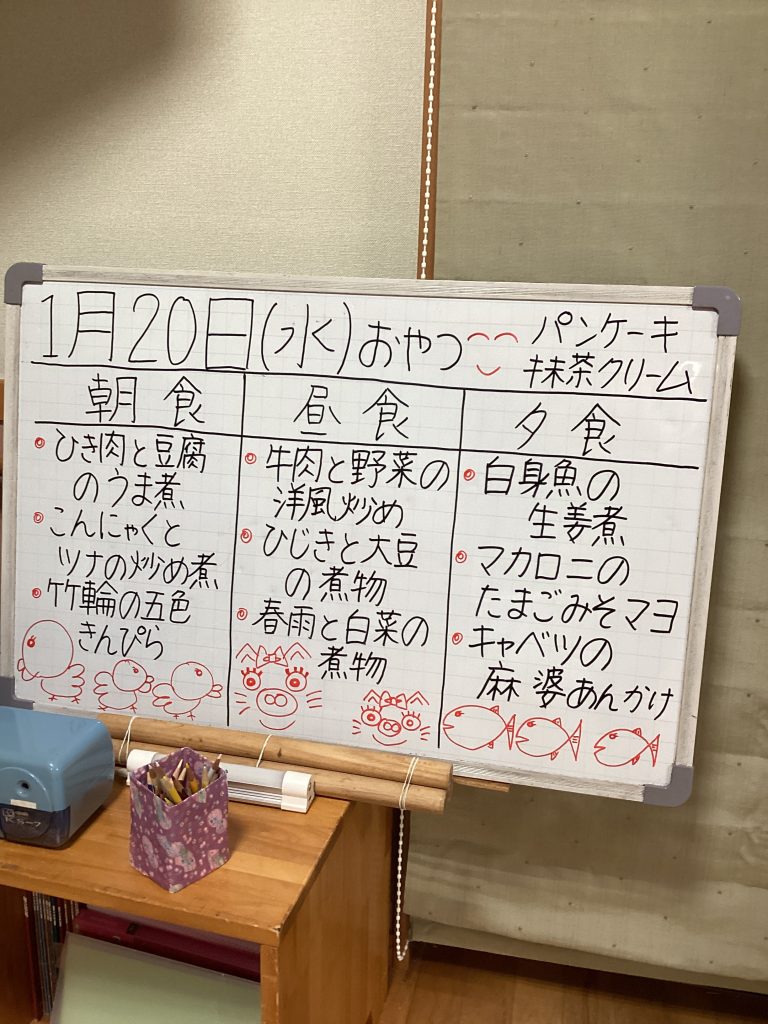 1月20日(水)おやつ パンケーキ
抹茶クリーム
朝食
ひき肉と豆腐
のうま煮
こんにゃくと
ツナの炒め煮
竹輪の五色
きんぴら
昼食
牛肉と野菜の
洋風炒め
ひじきと大豆
の煮物
春雨と白菜の
煮物
夕食
白身魚の
生姜煮
マカロニの
たまごみそマヨ
キャベツの
麻婆あんかけ